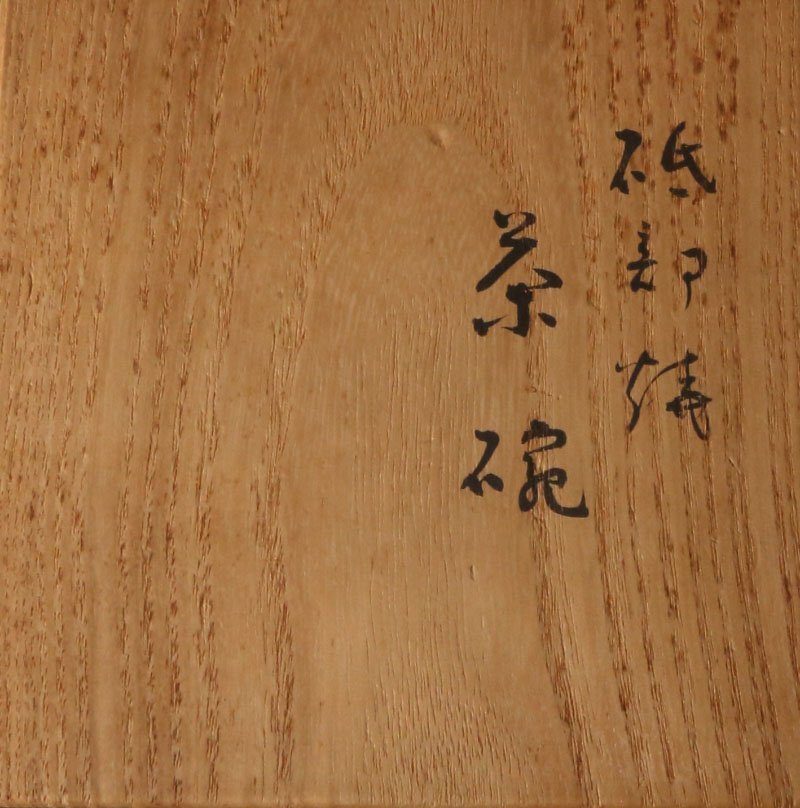 砥部焼
茶碗